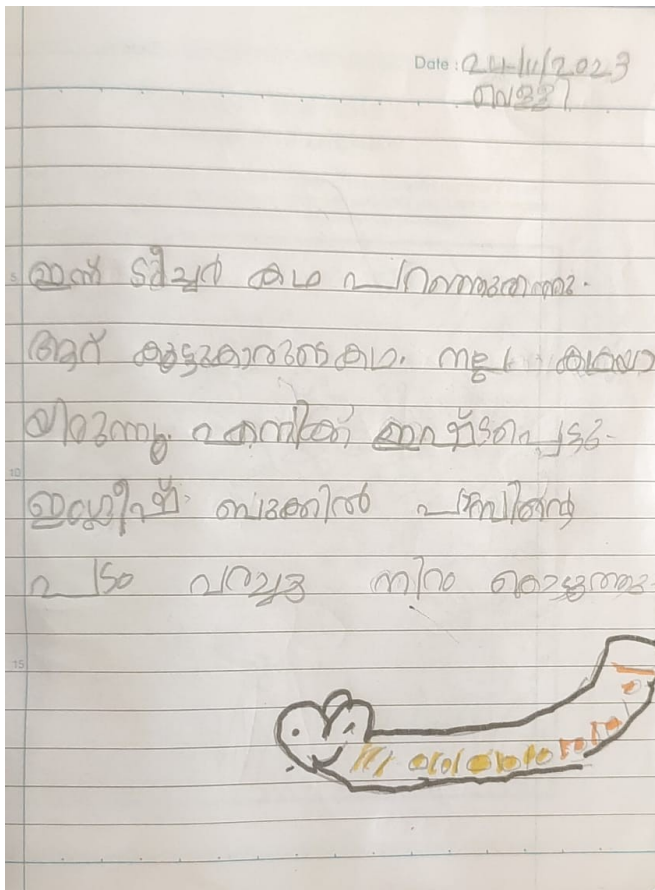 Date : 24/11/2023
വെള്ളി
5 ഇന്ന് ടീച്ചർ കഥ പറഞ്ഞുതന്നു.
ആറ് കൂട്ടുകാരുടെ കഥ. നല്ല കഥയാ
യിരുന്നു. എനിക്ക് ഇഷ്ടപ്പെട്ടു.
10
ഇംഗ്ലീഷ് ബുക്കിൽ പാമ്പിന്റെ
പടം വരച്ചു നിറം കൊടുത്തു.
15